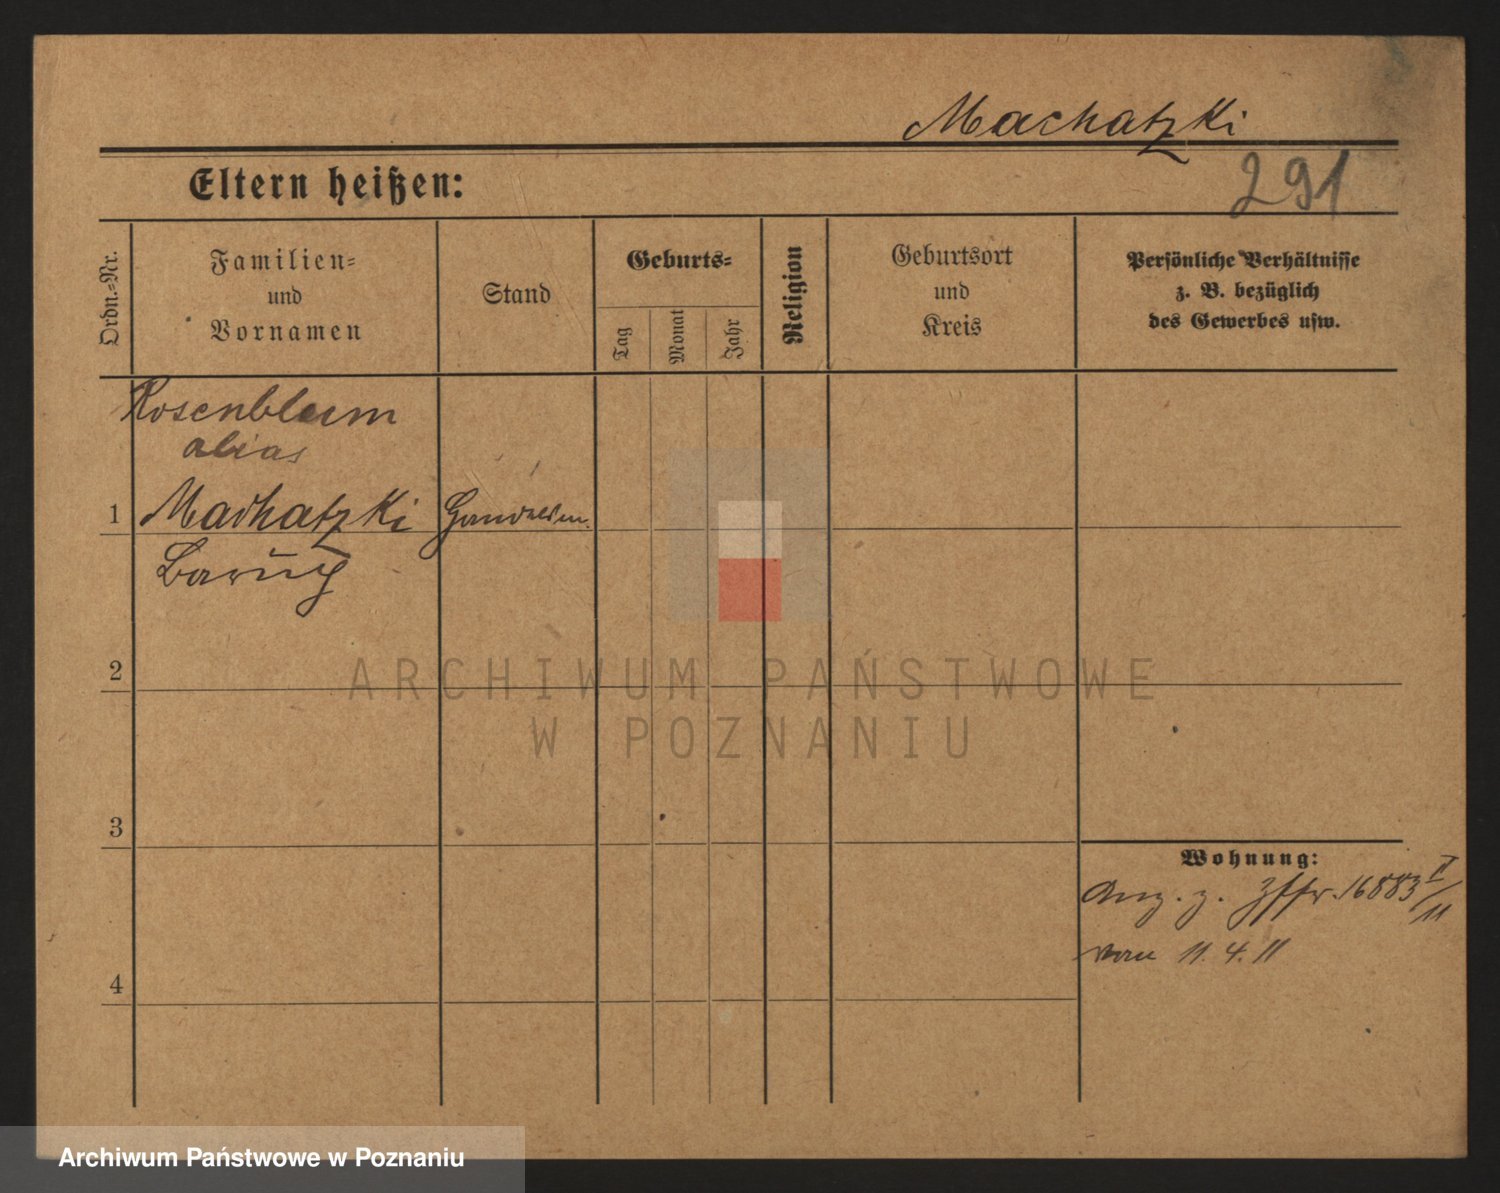 Machatzki
291
Eltern heißen:
Ordn.-Nr.
Familien-
und
Vornamen
Stand
Geburts-
Tag
Monat
Jahr
Religion
Geburtsort
und
Kreis
Persönliche Verhältnisse
z. B. bezüglich
des Gewerbes usw.
Rosenblum
alias
1 Machatzki
Baruch
2
3
4
Wohnung:
Anz. z. 16883 II/11
vom 11.4.11
ARCHIWUM PAŃSTWOWE
W POZNANIU
Archiwum Państwowe w Poznaniu